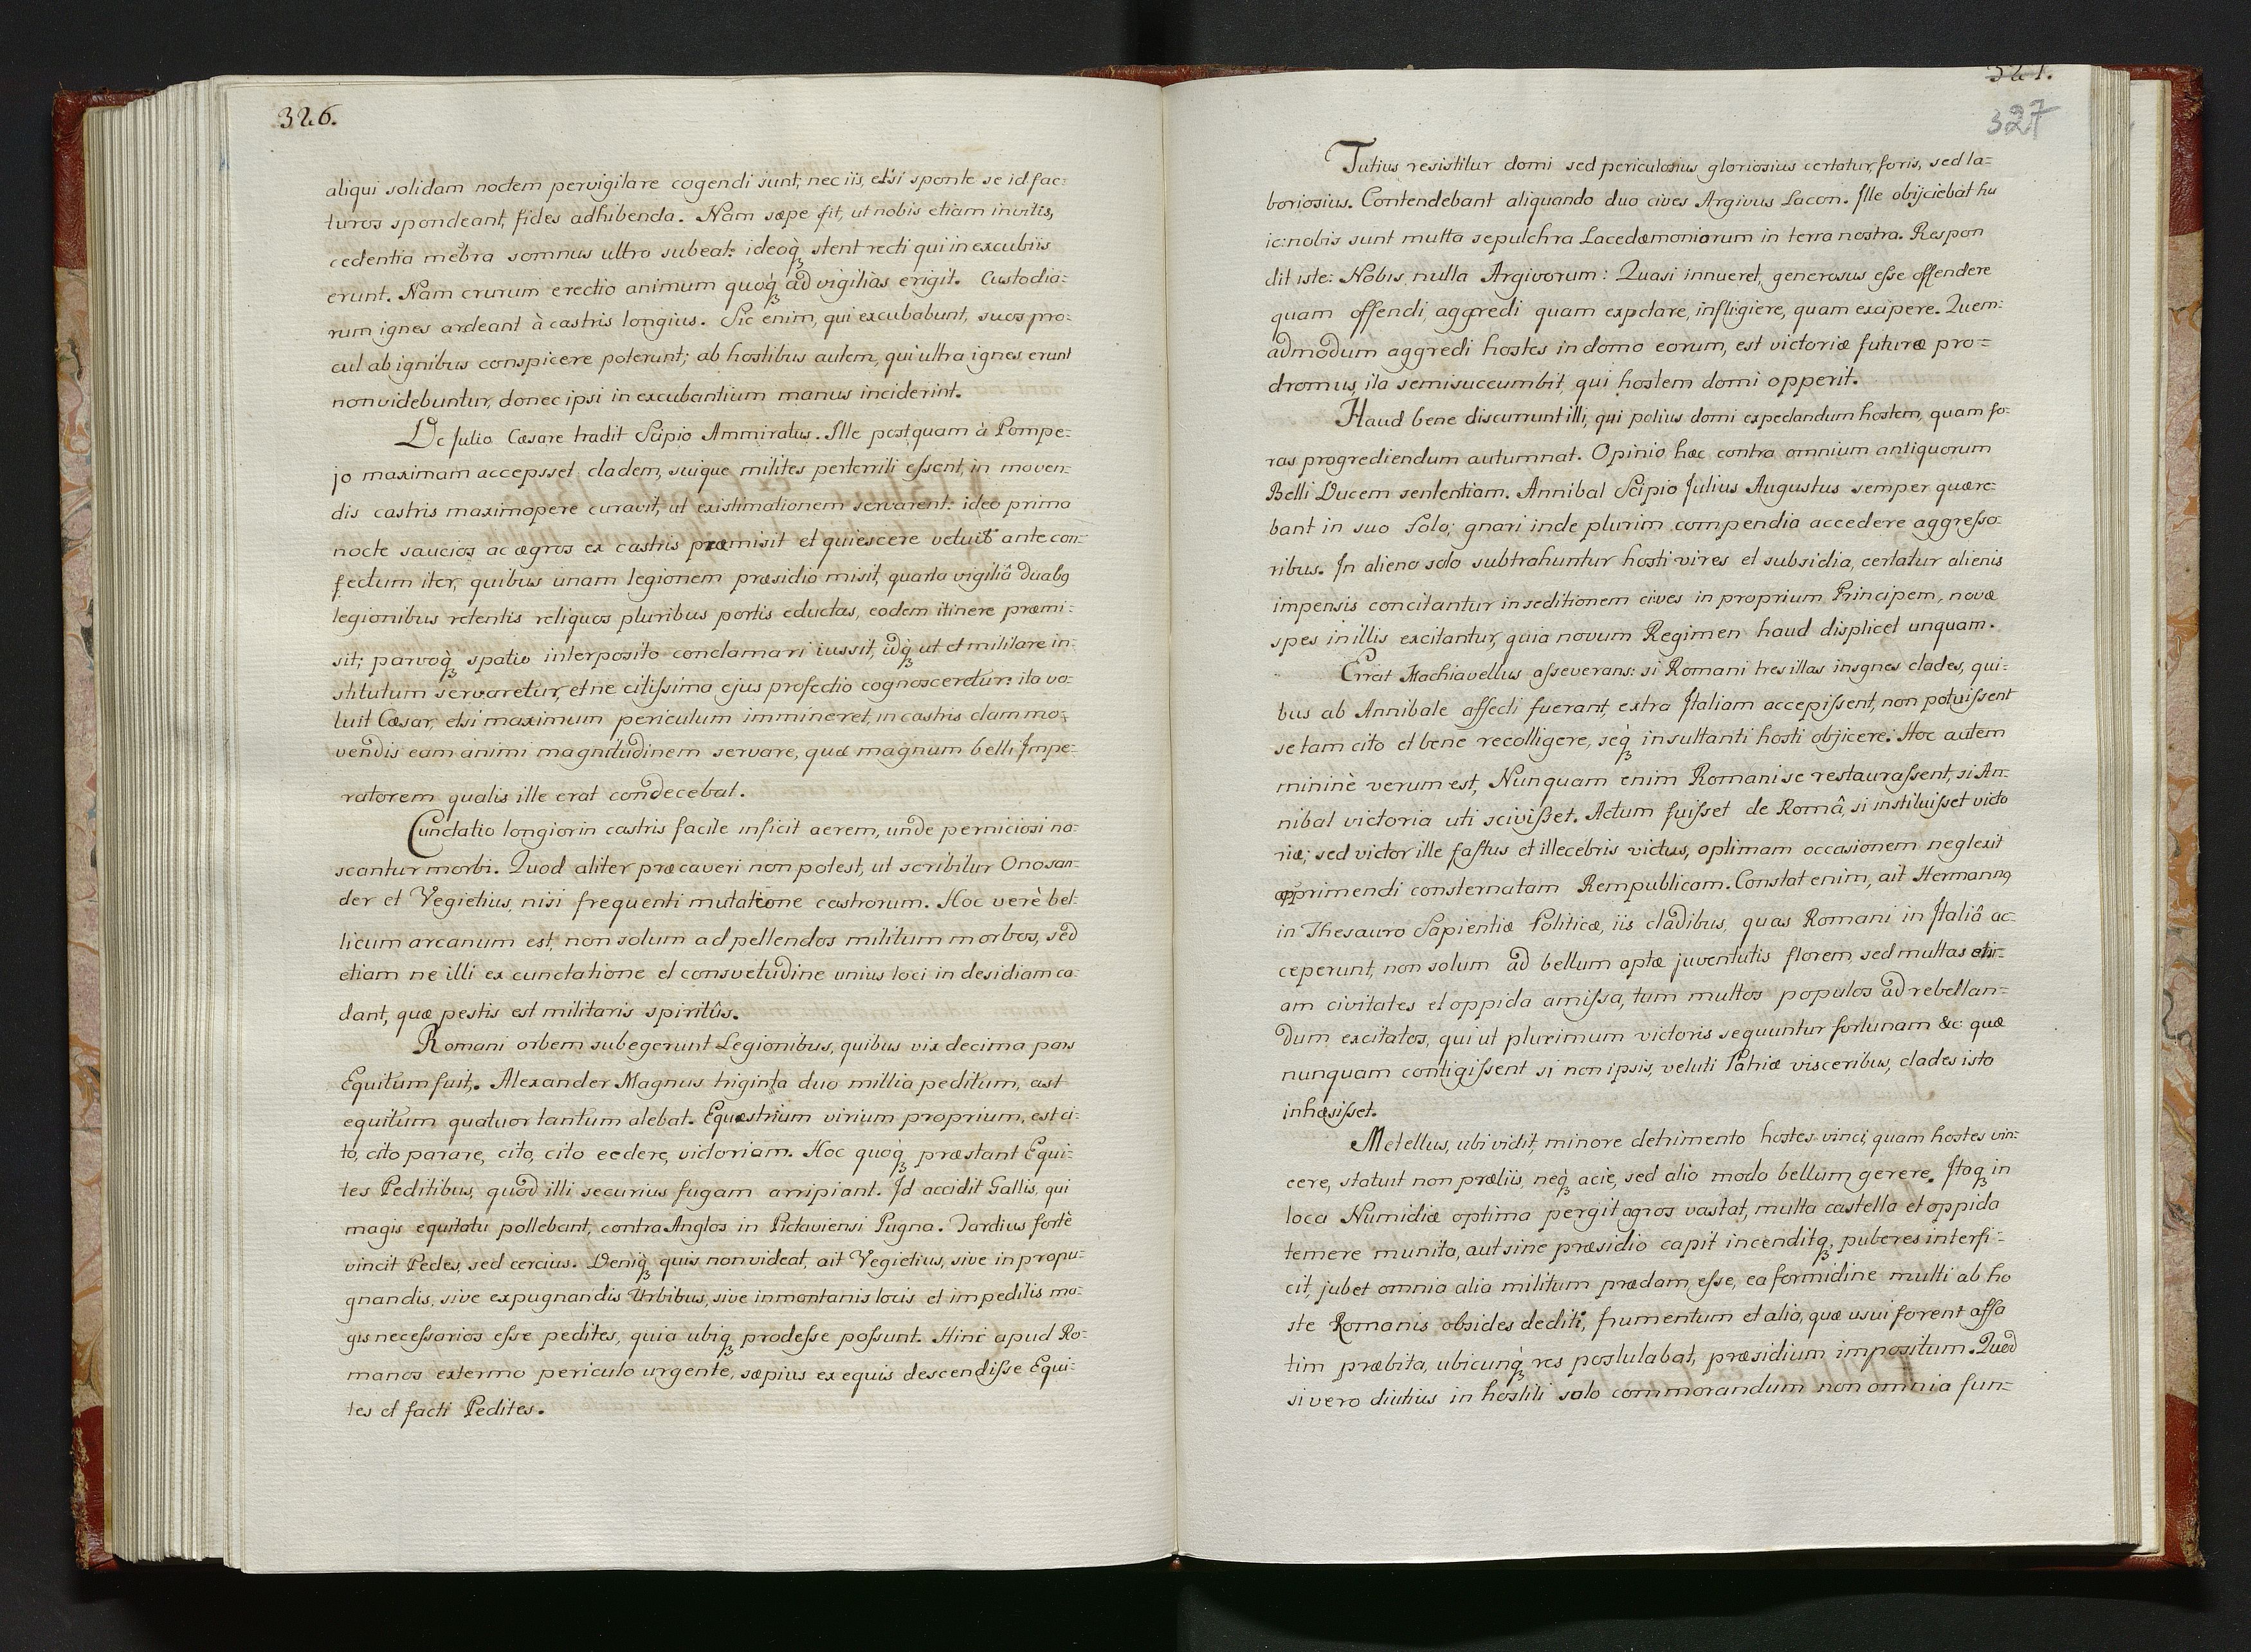 326.
aliqui solidam noctem pervigilare cogendi sunt, nec iis, etsi sponte se id fac=
turos spondeant, fides adhibenda. Nam sæpe fit, ut nobis etiam invitis,
cedentia mēbra somnus ultro subeat: ideoq̀ʒ stent recti qui in excubiis
erunt. Nam crurum erectio animum quoq̀ʒ ad vigilias erigit. Custodia=
rum ignes ardeant à castris longius. Sic enim, qui excubabunt, suos pro=
cul ab ignibus conspicere poterunt; ab hostibus autem, qui ultra ignes erunt
non videbuntur, donec ipsi in excubantium manus inciderint.
De Julio Cæsare tradit Scipio Ammiratus. Ille postquam à Pompe=
jo maximam accepsset cladem, suique milites perterriti essent, in moven=
dis castris maximopere curavit, ut existimationem servarent: ideo prima
nocte saucios ac ægros ex castris præmisit et quiescere vetuit ante con=
fectum iter, quibus unam legionem præsidio misit, quarta vigiliâ duabɡ
legionibus retentis reliquos pluribus portis eductas, eodem itinere præmi=
sit; parvoq̀ʒ spatio interposito conclamari iussit, idq̀ʒ ut et militare in=
stitutum servaretur, et ne citissima ejus profectio cognosceretur: ita vo=
luit Cæsar, etsi maximum periculum immineret, in castris clam mo=
vendis eam animi magnitudinem servare, quæ magnum belli Impe=
ratorem qualis ille erat condecebat.
Cunctatio longior in castris facile inficit aerem, unde perniciosi na=
scantur morbi. Quod aliter præcaveri non potest, ut scribitur Onosan=
der et Vegietius, nisi frequenti mutatione castrorum. Hoc verè bel=
licum arcanum est, non solum ad pellendos militum morbos, sed
etiam ne illi ex cunctatione et consvetudine unius loci in desidiam ca=
dant, quæ pestis est militaris spiritûs.
Romani orbem subegerunt Legionibus, quibus vix decima pars
Equitum fuit. Alexander Magnus triginta duo millia peditum, ast
equitum quatuor tantum alebat. Equæstrium virium proprium, est ci=
to, cito parare, cito, cito cedere, victoriam. Hoc quoq̀ʒ præstant Equi=
tes Peditibus, quod illi securius fugam arripiant. Id accidit Gallis, qui
magis equitatu pollebant, contra Anglos in Pictaviensi Pugna. Tardius fortè
vincit Pedes, sed cercius. Deniq̀ʒ quis non videat, ait Vegietius, sive in propu=
gnandis, sive expugnandis Urbibus, sive in montanis locis et impeditis ma=
gis necessarios esse pedites, quia ubiqʒ prodesse possunt. Hinc apud Ro=
manos extermo periculo urgente, sæpius ex equis descendisse Equi=
tes et facti Pedites.
327.
327
Tutius resistitur domi sed periculosius gloriosius certatur, foris, sed la=
boriosius. Contendebant aliquando duo cives Argivus Lacon. Ille obijciebat hu
ic: nobis sunt multa sepulchra Lacedæmoniorum in terra nostra. Respon
dit iste: Nobis nulla Argivorum: Quasi innueret, generosus esse offendere
quam offendi, aggredi quam expctare, infligiere, quam excipere. Quem=
admodum aggredi hostes in domo eorum, est victoriæ futuræ pro=
dromus, ita semisuccumbit, qui hostem domi opperit.
Haud bene discurrunt illi, qui potius domi expectandum hostem, quam fo=
ras progrediendum autumnat. Opinio hæc contra omnium antiquorum
Belli Ducem sententiam. Annibal Scipio Julius Augustus semper quære=
bant in suo Solo; gnari inde plurim compendia accedere aggresso=
ribus. In alieno solo subtrahuntur hosti vires et subsidia, certatur alienis
impensis concitantur in seditionem cives in proprium Principem, novæ
spes in illis excitantur, quia novum Regimen haud displicet unquam.
Errat Machiavellus asseverans: si Romani tres illas insgnes clades, qui=
bus ab Annibale affecti fuerant, extra Italiam accepissent, non potuissent
se tam cito et bene recolligere, seq̀ʒ insultanti hosti objicere. Hoc autem
mininè verum est, Nunquam enim Romani se restaurassent, si An=
nibal victoria uti scivisset. Actum fuisset de Româ, si instituisset victo
riæ; sed victor ille fastus et illecebris victus, optimam occasionem neglexit
opprimendi consternatam Rempublicam. Constat enim, ait Hermannɡ
in Thesauro Sapientiæ Politicæ, iis cladibus, quas Romani in Italiâ ac=
ceperunt, non solum ad bellum aptæ juventutis florem, sed multas eti=
am civitates et oppida amissa, tum multos populos ad rebellan=
dum excitatos, qui ut plurimum victoris sequuntur fortunam &c quæ
nunquam contigissent si non ipsis, veluti Patriæ visceribus, clades ista
inhæsisset.
Metellus, ubi vidit, minore detrimento hostes vinci, quam hostes vin=
cere, statuit non præliis, neq̀ʒ acie, sed alio modo bellum gerere. Itaqʒ in
loca Numidiæ optima pergit agros vastat, multa castella et oppida
temere munita, aut sine præsidio capit incenditqʒ, puberes interfi=
cit, jubet omnia alia militum prædam esse, ea formidine multi ab ho
ste Romanis obsides dediti, frumentum et alia, quæ usui forent affa
tim præbita, ubicunq̀ʒ res postulabat, præsidium impositum. Quod
si vero diutius in hostili solo commorandum non omnia fun=